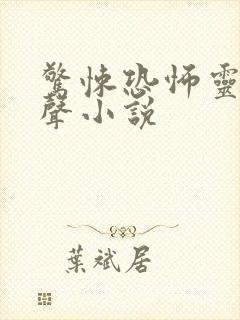 驚悚恐怖靈
聲小說
葉斌居